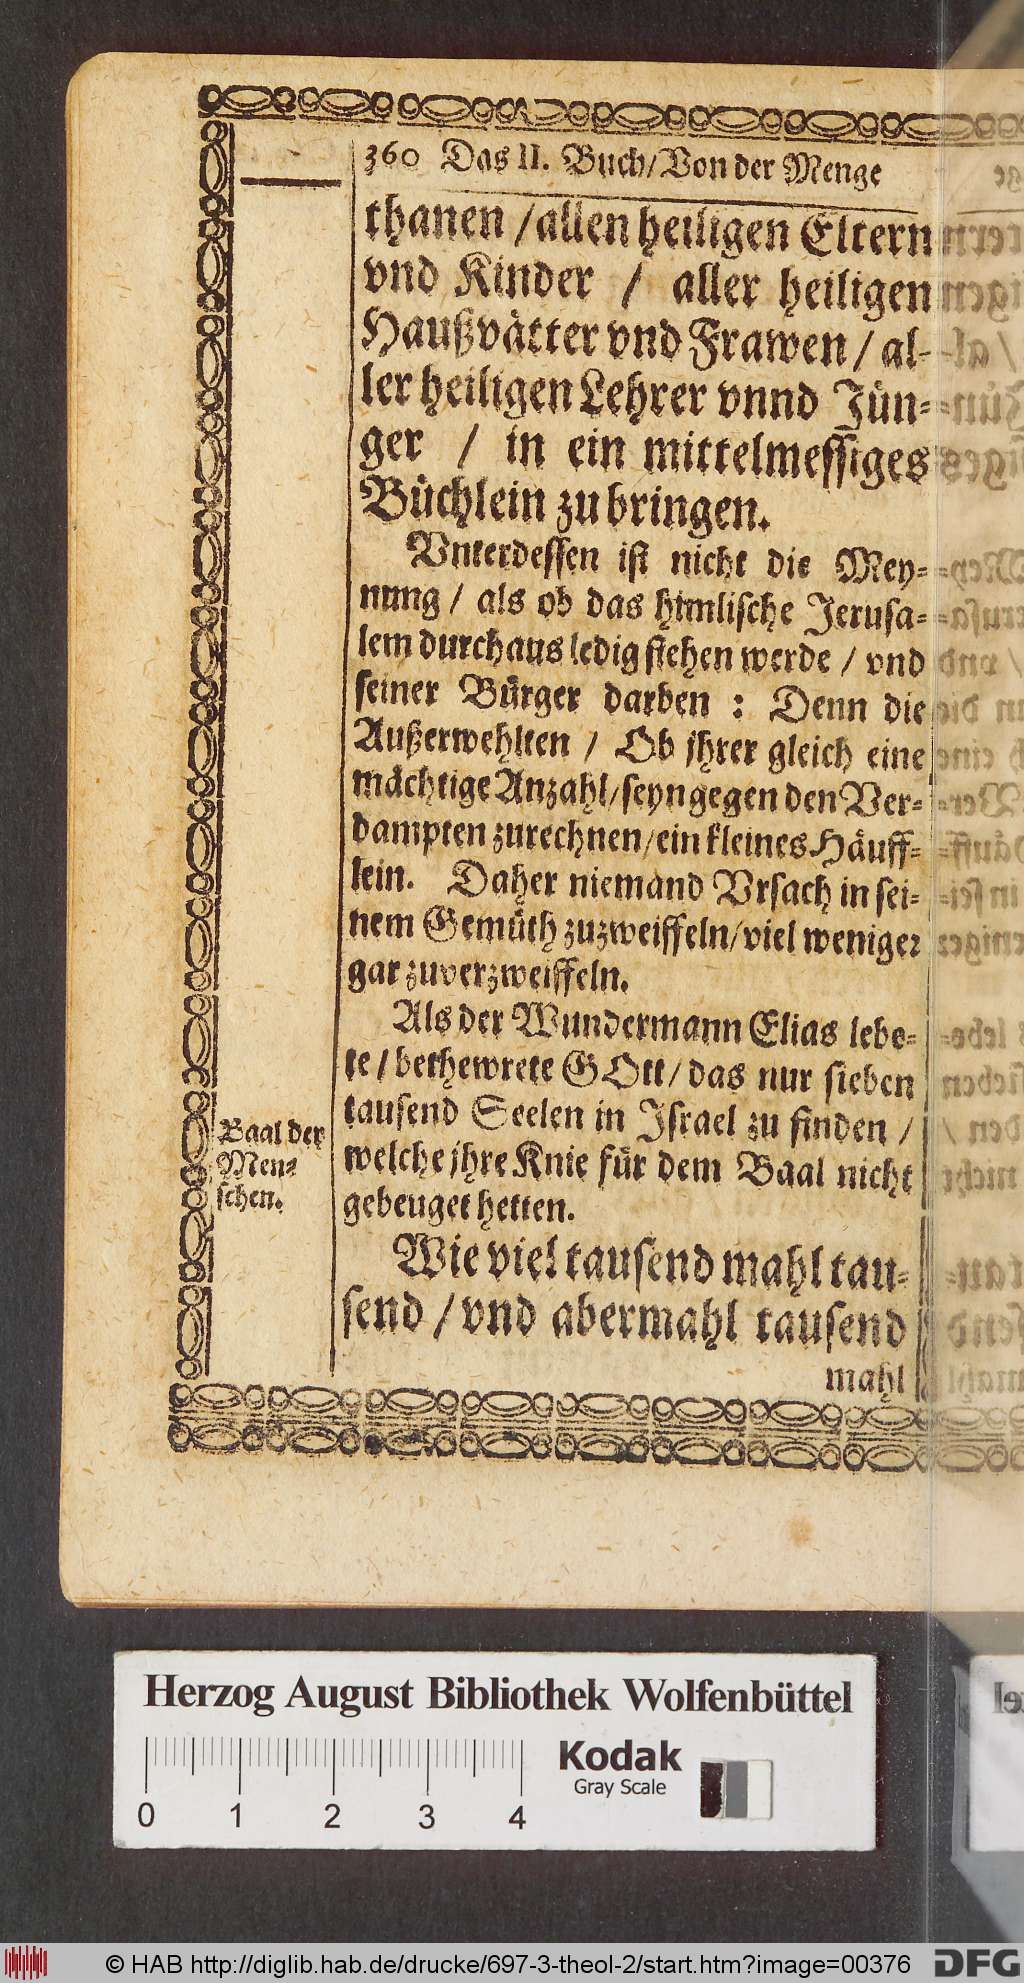 360 Das II. Buch/Von der Menge
thanen /allen heiligen Eltern
vnd Kinder / aller heiligen
Haußvätter vnd Frawen / al-
ler heiligen Lehrer vnnd Jün-
ger / in ein mittelmessiges
Büchlein zu bringen.
Vnterdessen ist nicht die Mey-
nung / als ob das himlische Jerusa-
lem durchaus ledig stehen werde / vnd
seiner Bürger darben : Denn die
Außerwehlten / Ob jhrer gleich eine
mächtige Anzahl/seyn gegen den Ver-
dampten zurechnen/ein kleines Häuff-
lein. Daher niemand Vrsach in sei-
nem Gemüth zuzweiffeln/viel weniger
gar zuverzweiffeln.
Als der Wundermann Elias lebe-
te / bethewrete GOtt/ das nur sieben
tausend Seelen in Israel zu finden /
welche jhre Knie für dem Baal nicht
gebeuget hetten.
Baal der
Men-
schen.
Wie viel tausend mahl tau-
send / vnd abermahl tausend
mahl
Herzog August Bibliothek Wolfenbüttel
Kodak
Gray Scale
0 1 2 3 4
© HAB http://diglib.hab.de/drucke/697-3-theol-2/start.htm?image=00376
DFG